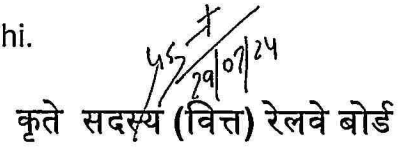 hi.
29/07/24
कृते सदस्य (वित्त) रेलवे बोर्ड